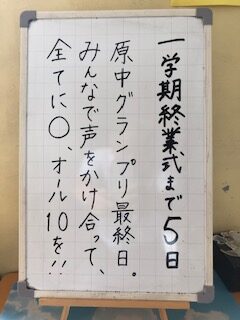 一学期終業式まで5日
原中グランプリ最終日。
みんなで声をかけ合って、
全てに〇、オール10を!!